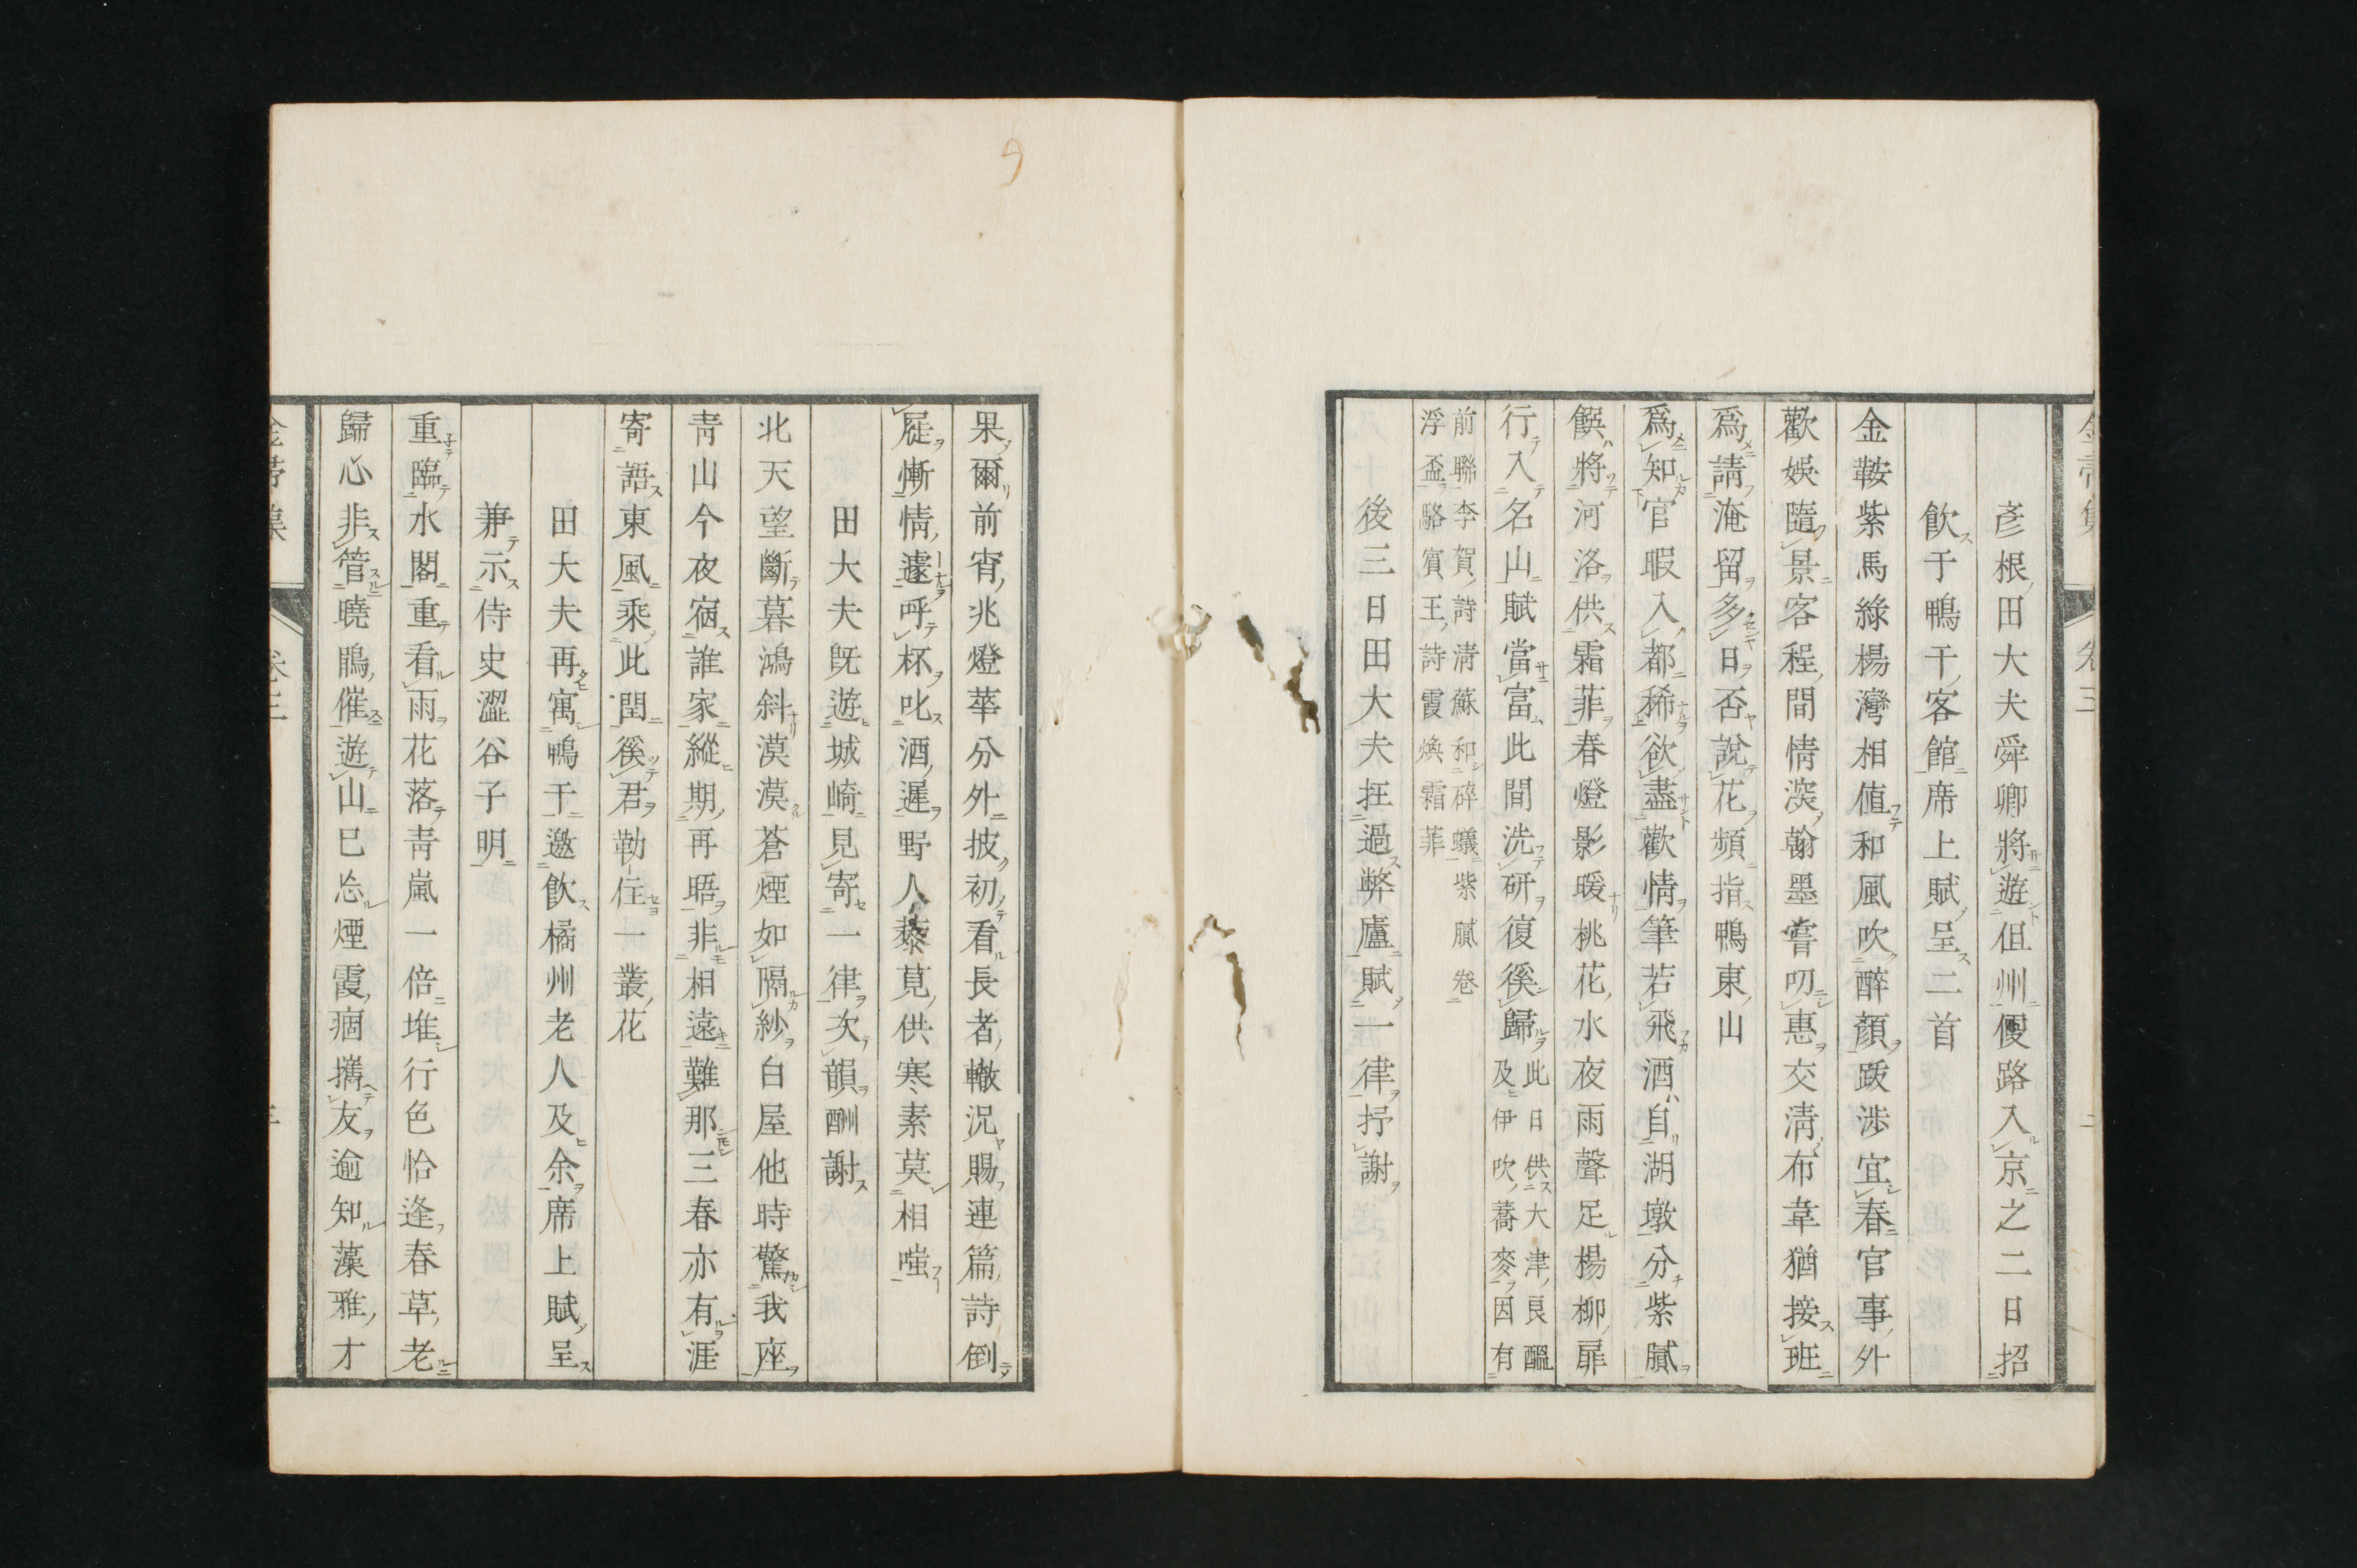 彥根田大夫舜卿將遊但州便路入京之二日招
飮于鴨干客館席上賦呈二首
金鞍紫馬綠楊灣相値和風吹醉顏跋涉宜春官事外
歡娛隨景客程間情深翰墨嘗叨惠交淸布韋猶接班
爲請淹留多日否說花頻指鴨東山
爲知官暇入都稀欲盡歡情筆若飛酒自湖墩分紫膩
饌將河洛供霜菲春燈影暖桃花水夜雨聲足楊柳扉
行入名山賦當富此間洗硏復徯歸
此日供大津良醞
及伊吹蕎麥因有
前聯李賀詩淸蘇和碎蟻紫膩卷
浮盃駱賓王詩霞煥霜菲
後三日田大夫抂過弊廬賦一律抒謝
果爾前宵兆燈華分外披初看長者轍況賜連篇詩倒
屣慚情遽呼杯叱酒遲野人藜莧供寒素莫相嗤
田大夫旣遊城崎見寄一律次韻酬謝
北天望斷暮鴻斜漠漠蒼煙如隔紗白屋他時驚我座
靑山今夜宿誰家縱期再晤非相遠難那三春亦有涯
寄語東風乘此閏徯君勒住一叢花
田大夫再寓鴨干邀飮橘州老人及余席上賦呈
兼示侍史澀谷子明
重臨水閣重看雨花落靑嵐一倍堆行色恰逢春草老
歸心非管曉鵑催遊山已忘煙霞痼攜友逾知藻雅才